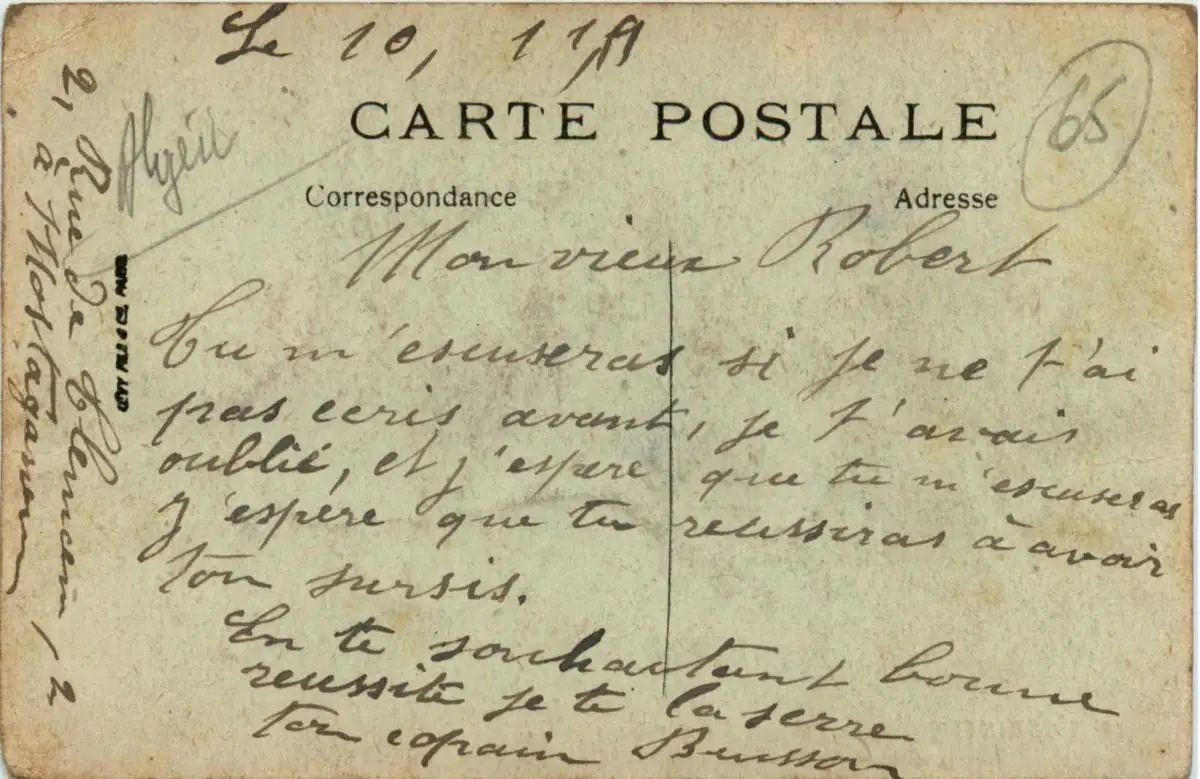 Le 10, 11,
CARTE POSTALE
65
Correspondance
Adresse
Algérie
Mon vieux Robert
Tu m'escuseras si je ne t'ai
pas ecris avant, je t'avais
oublié, et j'espère que tu m'escuseras
J'espère que tu reussiras à avoir
ton sursis.
En te souhaitant bonne
reussite je te la serre
ton copain Buisson
2, Rue de Tlemcen, 2
à Mostaganem